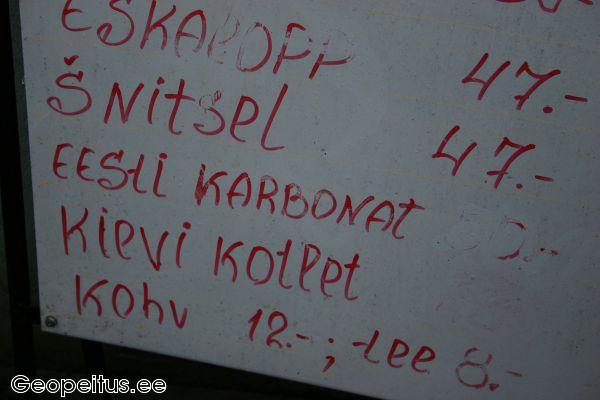 ESKALOPP 47.-
ŠNITSEL 47.-
EESTI KARBONAT
KIEVI KOTLET
KOHV 12.-; tee 8.-
Geopeitus.ee